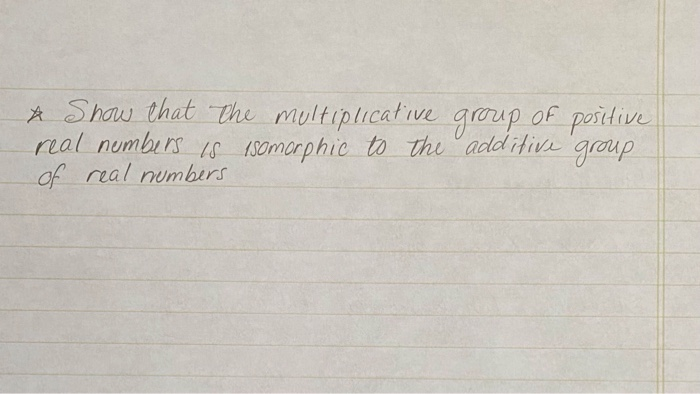 ☆ Show that the multiplicative group of positive
real numbers is isomorphic to the additive group
of real numbers